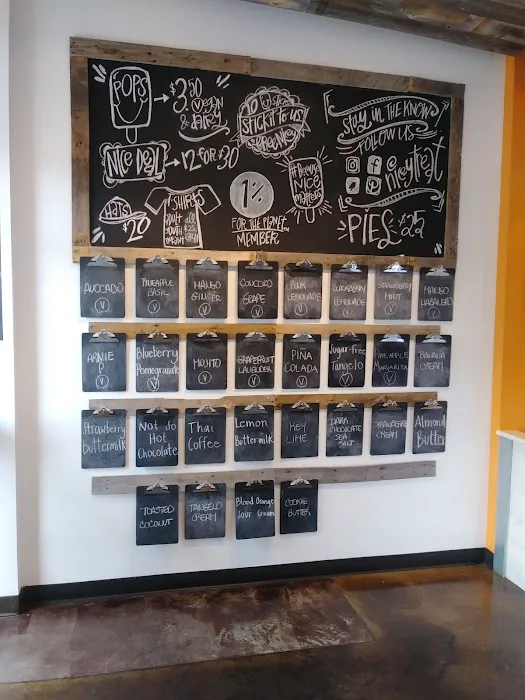 POPS
$3.50
VEGAN
& DAIRY
NICE DEAL
12 FOR $30
HATS
$20
T-SHIRTS
STICK IT TO US
1%
FOR THE PLANET
MEMBER
#BECAUSE
NICE
MATTERS
STAY IN THE KNOW
FOLLOW US
@
niceytreat
PIES $25
AVOCADO
V
PINEAPPLE
BASIL
V
MANGO
GINGER
V
COCONUT
GRAPE
V
PINK
LEMONADE
V
LEMONADE
V
STRAWBERRY
MINT
V
MANGO
HABANERO
V
ARNIE
P
V
Blueberry
Pomegranate
V
MOJITO
V
GRAPEFRUIT
LAVENDER
V
PIÑA
COLADA
V
Sugar-Free
Tangelo
V
PINEAPPLE
MARGARITA
V
BANANA
CREAM
Strawberry
Buttermilk
Not do
Hot
Chocolate
Thai
Coffee
Lemon
Buttermilk
KEY
LIME
DARK
CHOCOLATE
SEA
SALT
STRAWBERRY
CREAM
Almond
Butter
TOASTED
COCONUT
TANGELO
CREAM
Blood Orange
Sour Cream
COOKIE
BUTTER